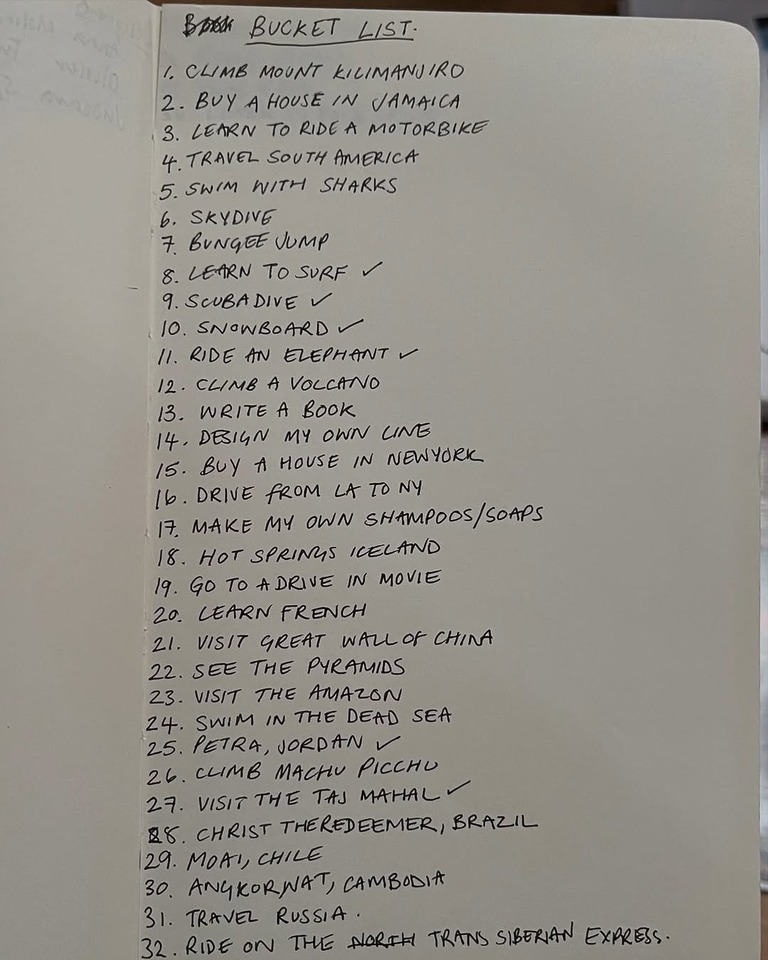 BUCKET LIST.
1. CLIMB MOUNT KILIMANJIRO
2. BUY A HOUSE IN JAMAICA
3. LEARN TO RIDE A MOTORBIKE
4. TRAVEL SOUTH AMERICA
5. SWIM WITH SHARKS
6. SKYDIVE
7. BUNGEE JUMP
8. LEARN TO SURF ✓
9. SCUBADIVE ✓
10. SNOWBOARD ✓
11. RIDE AN ELEPHANT ✓
12. CLIMB A VOLCANO
13. WRITE A BOOK
14. DESIGN MY OWN LINE
15. BUY A HOUSE IN NEWYORK
16. DRIVE FROM LA TO NY
17. MAKE MY OWN SHAMPOOS/SOAPS
18. HOT SPRINGS ICELAND
19. GO TO A DRIVE IN MOVIE
20. LEARN FRENCH
21. VISIT GREAT WALL OF CHINA
22. SEE THE PYRAMIDS
23. VISIT THE AMAZON
24. SWIM IN THE DEAD SEA
25. PETRA, JORDAN ✓
26. CLIMB MACHU PICCHU
27. VISIT THE TAJ MAHAL ✓
28. CHRIST THE REDEEMER, BRAZIL
29. MOAI, CHILE
30. ANGKOR WAT, CAMBODIA
31. TRAVEL RUSSIA.
32. RIDE ON THE NORTH TRANS SIBERIAN EXPRESS.